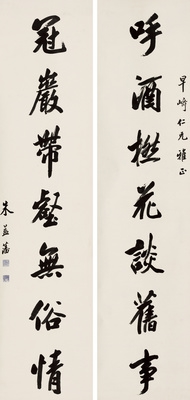 早崎仁兄雅正
呼酒撚花談舊事
冠巖帶壑無俗情
朱益藩